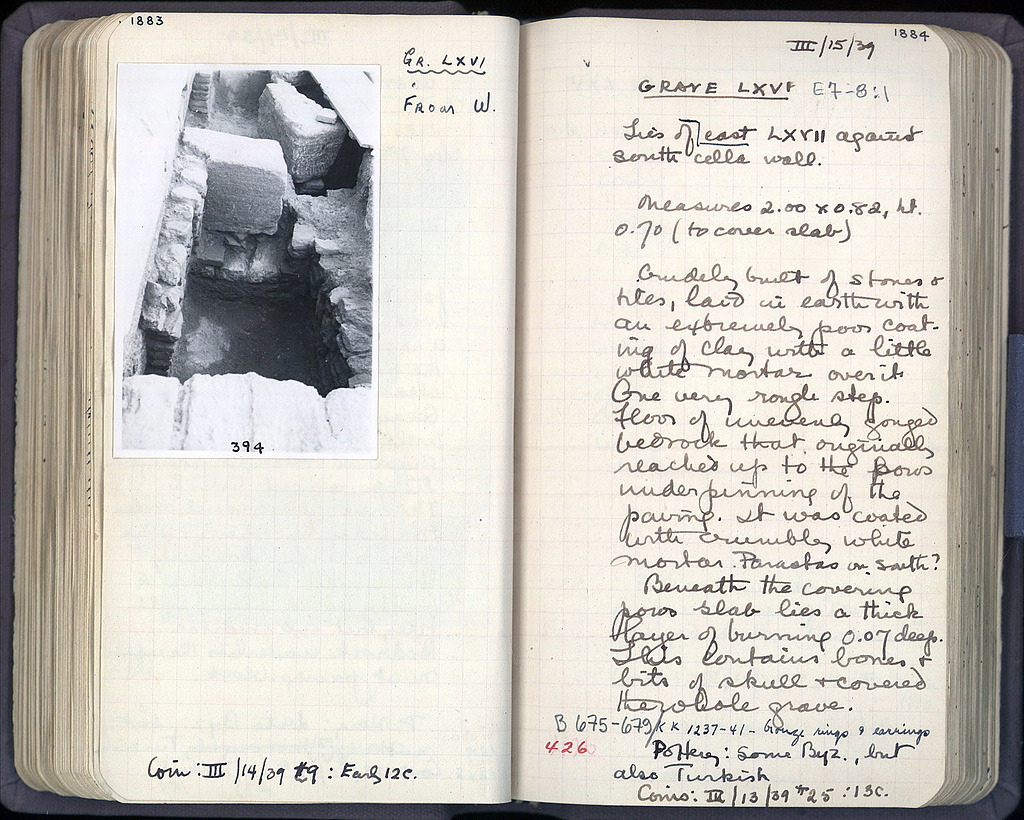 1883
Gr. LXVI
From W.
394
Coin: III/14/39 #9: Early 12c.
1884
III/15/39
GRAVE LXVI E7-8:1
Lies of east LXVII against
south cella wall.
Measures 2.00 x 0.82, ht.
0.70 (to cover slab)
Crudely built of stones +
tiles, laid in earth with
an extremely poor coat-
ing of clay with a little
white mortar over it.
One very rough step.
Floor of unevenly gouged
bedrock that originally
reached up to the poros
underpinning of the
paving. It was coated
with crumbly white
mortar. Parastas on south?
Beneath the covering
poros slab lies a thick
layer of burning 0.07 deep.
This contains bones +
bits of skull + covered
the whole grave.
B 675-679/KK 1237-41 - bronze rings & earrings
426
Pottery: some Byz., but
also Turkish
Coins: III/13/39 #25: 13c.